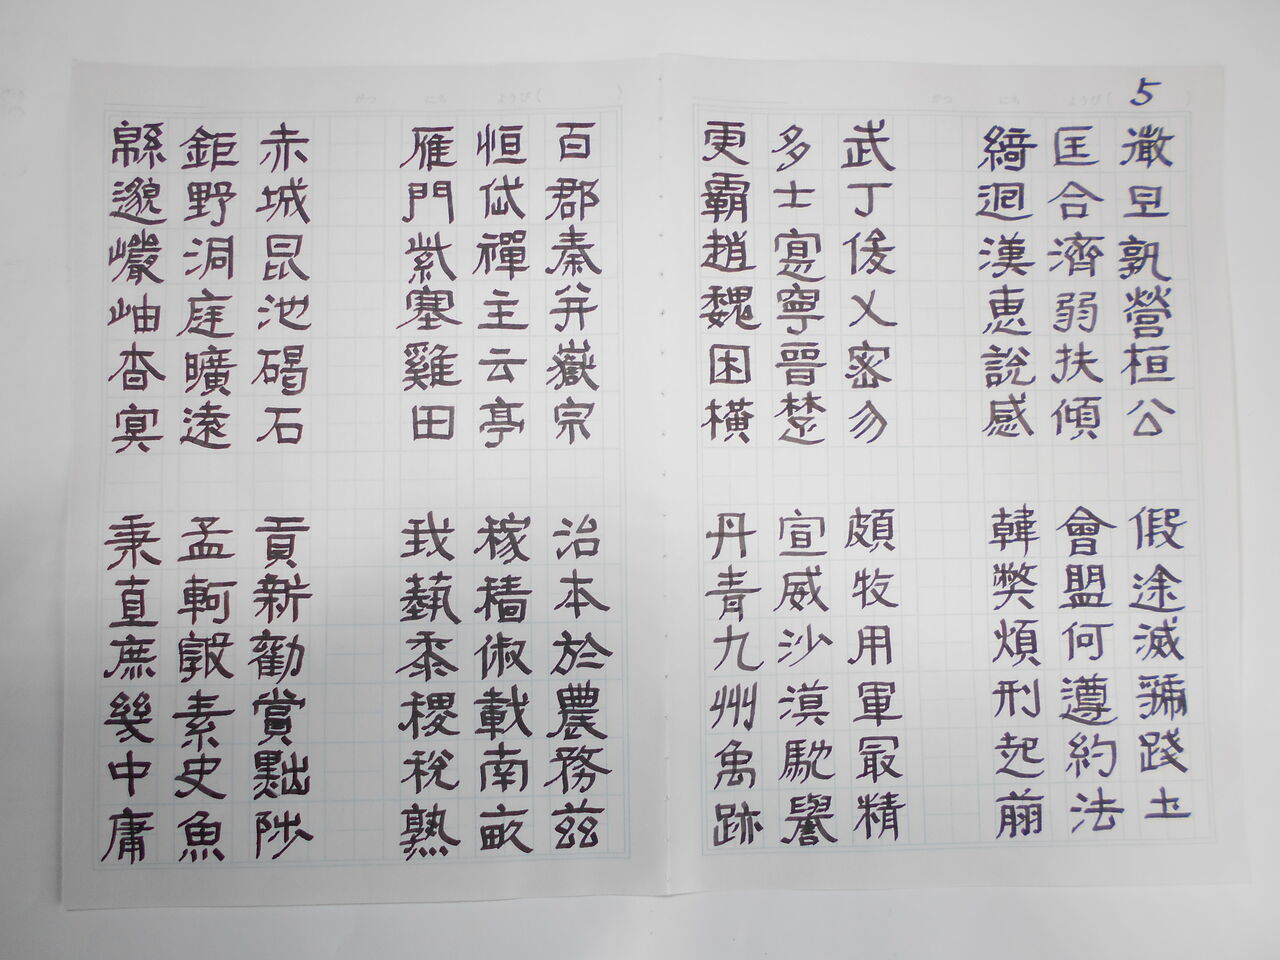 がつ にち ようび( )
5
微旦孰營桓公
匡合濟弱扶傾
綺迴漢惠說感
武丁俊乂密勿
多士寔寧晉楚
更霸趙魏困橫
假途滅虢踐土
會盟何遵約法
韓弊煩刑起翦
頗牧用軍最精
宣威沙漠馳譽
丹青九州禹跡
がつ にち ようび( )
百郡秦并嶽宗
恒岱禪主云亭
雁門紫塞雞田
赤城昆池碣石
鉅野洞庭曠遠
緜邈巖岫杳冥
治本於農務茲
稼穡俶載南畝
我藝黍稷稅熟
貢新勸賞黜陟
孟軻敦素史魚
秉直庶幾中庸